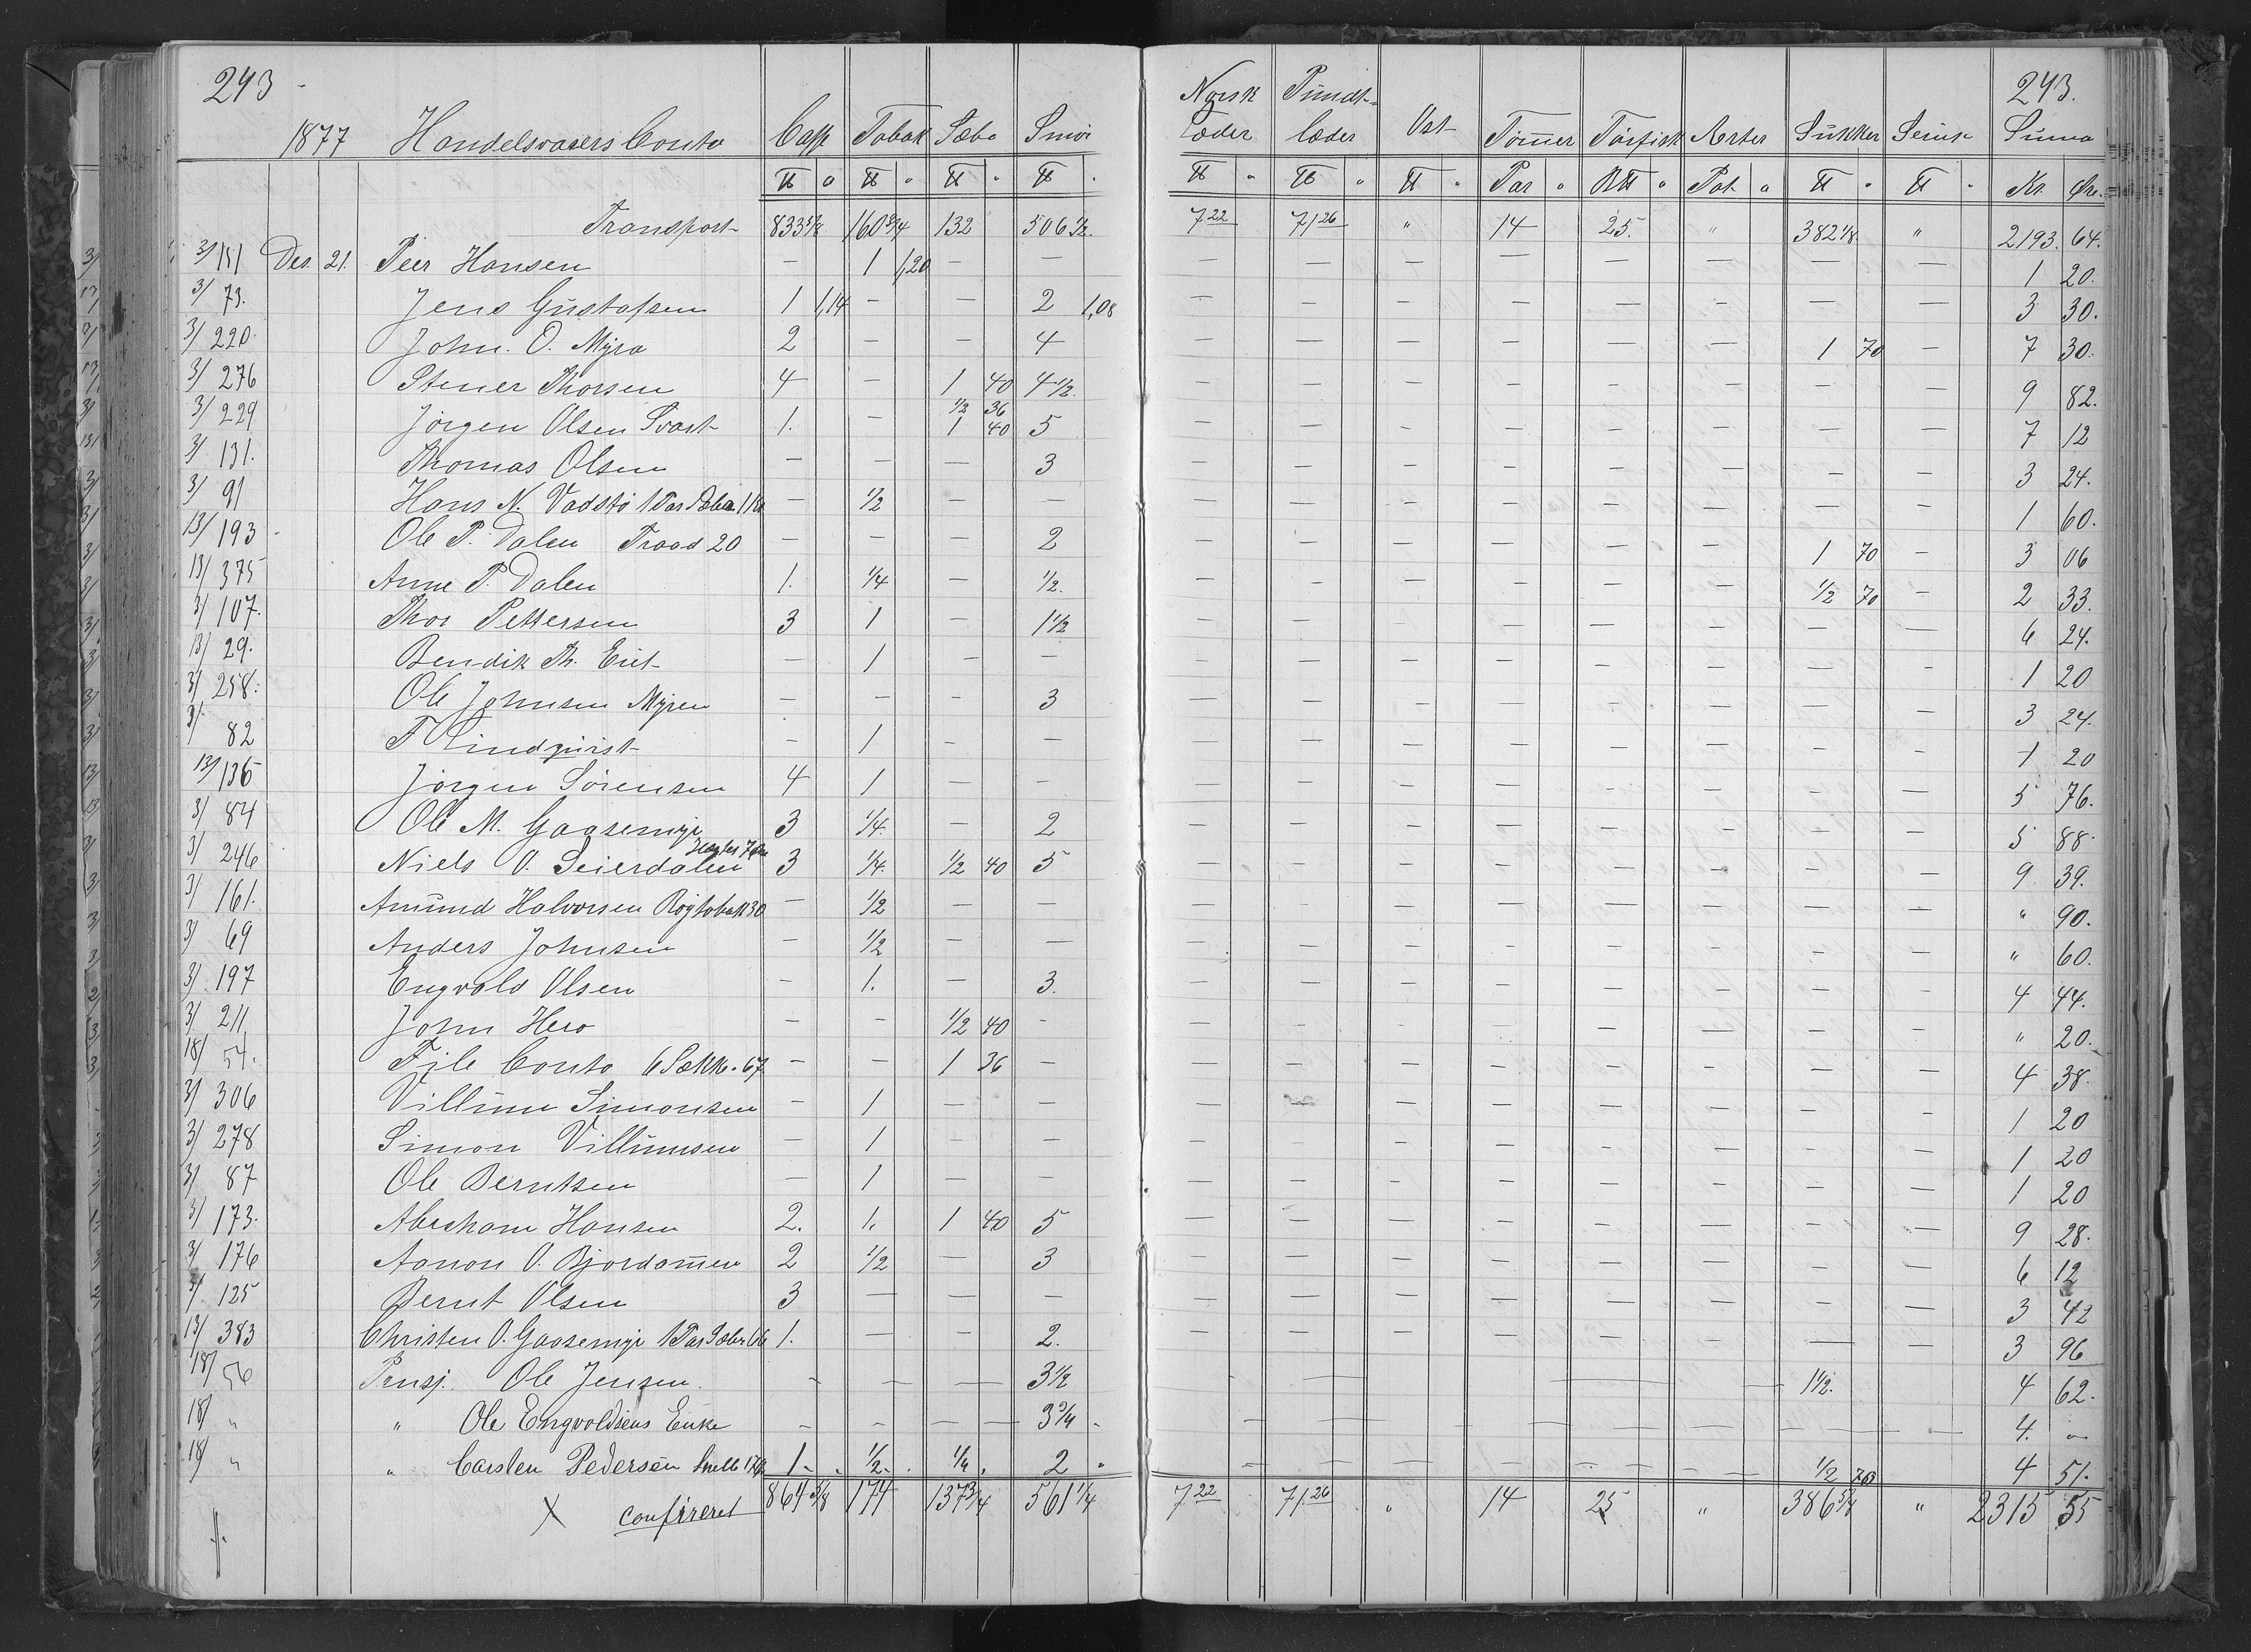 243 243.
1877 Handelsvarers Conto Caffe Tobak Sæbe Smør Norsk Læder Pundtlæder Ost Tømmer Tørfisk Aerter Sukker Summa
℔ " ℔ " ℔ " ℔ " ℔ " ℔ " ℔ " Par " B℔ " Pot. " ℔ " ℔ " Kr. Øre.
Transport 833 5/8 160 3/4 132 506 1/2. 7 22 71 26 " 14 25. " 382 1/8 " 2193. 64.
3/181 Des. 21. Peer Hansen — 1 1,20 — — — — — — — — — — 1 20.
3/ 73. Jens Gustafsen 1 1,14 — — 2 1,08 — — — — — — — — 3 30.
3/ 220. John. O. Myra 2 — — 4 — — — — — — 1 70 — 7 30.
3/ 276 Stener Thorsen 4 — 1 40 4 1/2. — — — — — — — — 9 82.
3/ 229 Jørgen Olsen Svart 1. — 1/2 36 1 40 5 — — — — — — — — 7 12
3/ 131. Thomas Olsen — — — 3 — — — — — — — — 3 24.
3/ 91 Hans N. Vadstø 1 Par — 1/2 — — — — — — — — — — 1 60.
13/193 Ole P. Dalen Traad 20 — — — 2 — — — — — — 1 70 — 3 06
13/375 Anne P. Dalen 1. 1/4 — 1/2. — — — — — — 1/2 70 — 2 33.
3/ 107. Thor Pettersen 3 1 — 1 1/2 — — — — — — — — 6 24.
13/ 29. Bendik Th. Eiet — 1 — — — — — — — — — — 1 20
3/ 258. Ole Johnsen Myren — — — 3 — — — — — — — — 3 24.
3/ 82 F Lindquist — 1 — — — — — — — — — — 1 20
13/136 Jørgen Sørensen 4 1 — — — — — — — — — — 5 76.
3/ 84 Ole M. Gaasemyr 3 1/4. — 2 — — — — — — — — 5 88.
3/ 246 Niels O. Seierdalen 3 1/4. 1/2 40 5 — — — — — — — — 9 39.
3/ 161. Amund Halvorsen Røgtobak 30 — 1/2 — — — — — — — — — — " 90.
3/ 69 Anders Johnsen — 1/2 — — — — — — — — — — " 60.
3/ 197 Engvald Olsen — 1. — 3. — — — — — — — — 4 44.
3/ 211 John Hero — — 1/2 40 — — — — — — — — — " 20.
18/ 54. File Conto 6 Sækk. 67 — — 1 36 — — — — — — — — — 4 38.
3/ 306 Villum Simonsen — 1 — — — — — — — — — — 1 20
3/ 278 Simon Villumsen — 1 — — — — — — — — — — 1 20
3/ 87 Ole Berntsen — 1 — — — — — — — — — — 1 20
3/ 173. Abraham Hansen 2. 1. 1 40 5 — — — — — — — — 9 28.
3/ 176 Aanon O. Bjordammen 2 1/2 — 3 — — — — — — — — 6 12
3/ 125 Bernt Olsen 3 — — — — — — — — — — — 3 42
13/ 383 Christen O. Gaasemyr 1 Par 66 1. — — 2. — — — — — — — — 3 96
18/ 56 Pensj. Ole Jensen. — — — 3 1/2 — — — — — 1 1/2. 4 62.
18/ " " Ole Engvoldsens Enke — — — 3 3/4 — — — — — — — — 4. "
18/ " " Carsten Pedersen 1 1/2 1/4 2 — — — — — — 1/2 70 4 51.
X confereret 864 3/8 174 137 3/4 561 1/4 7 22 71 26 " 14 25 " 386 3/4 " 2315 55